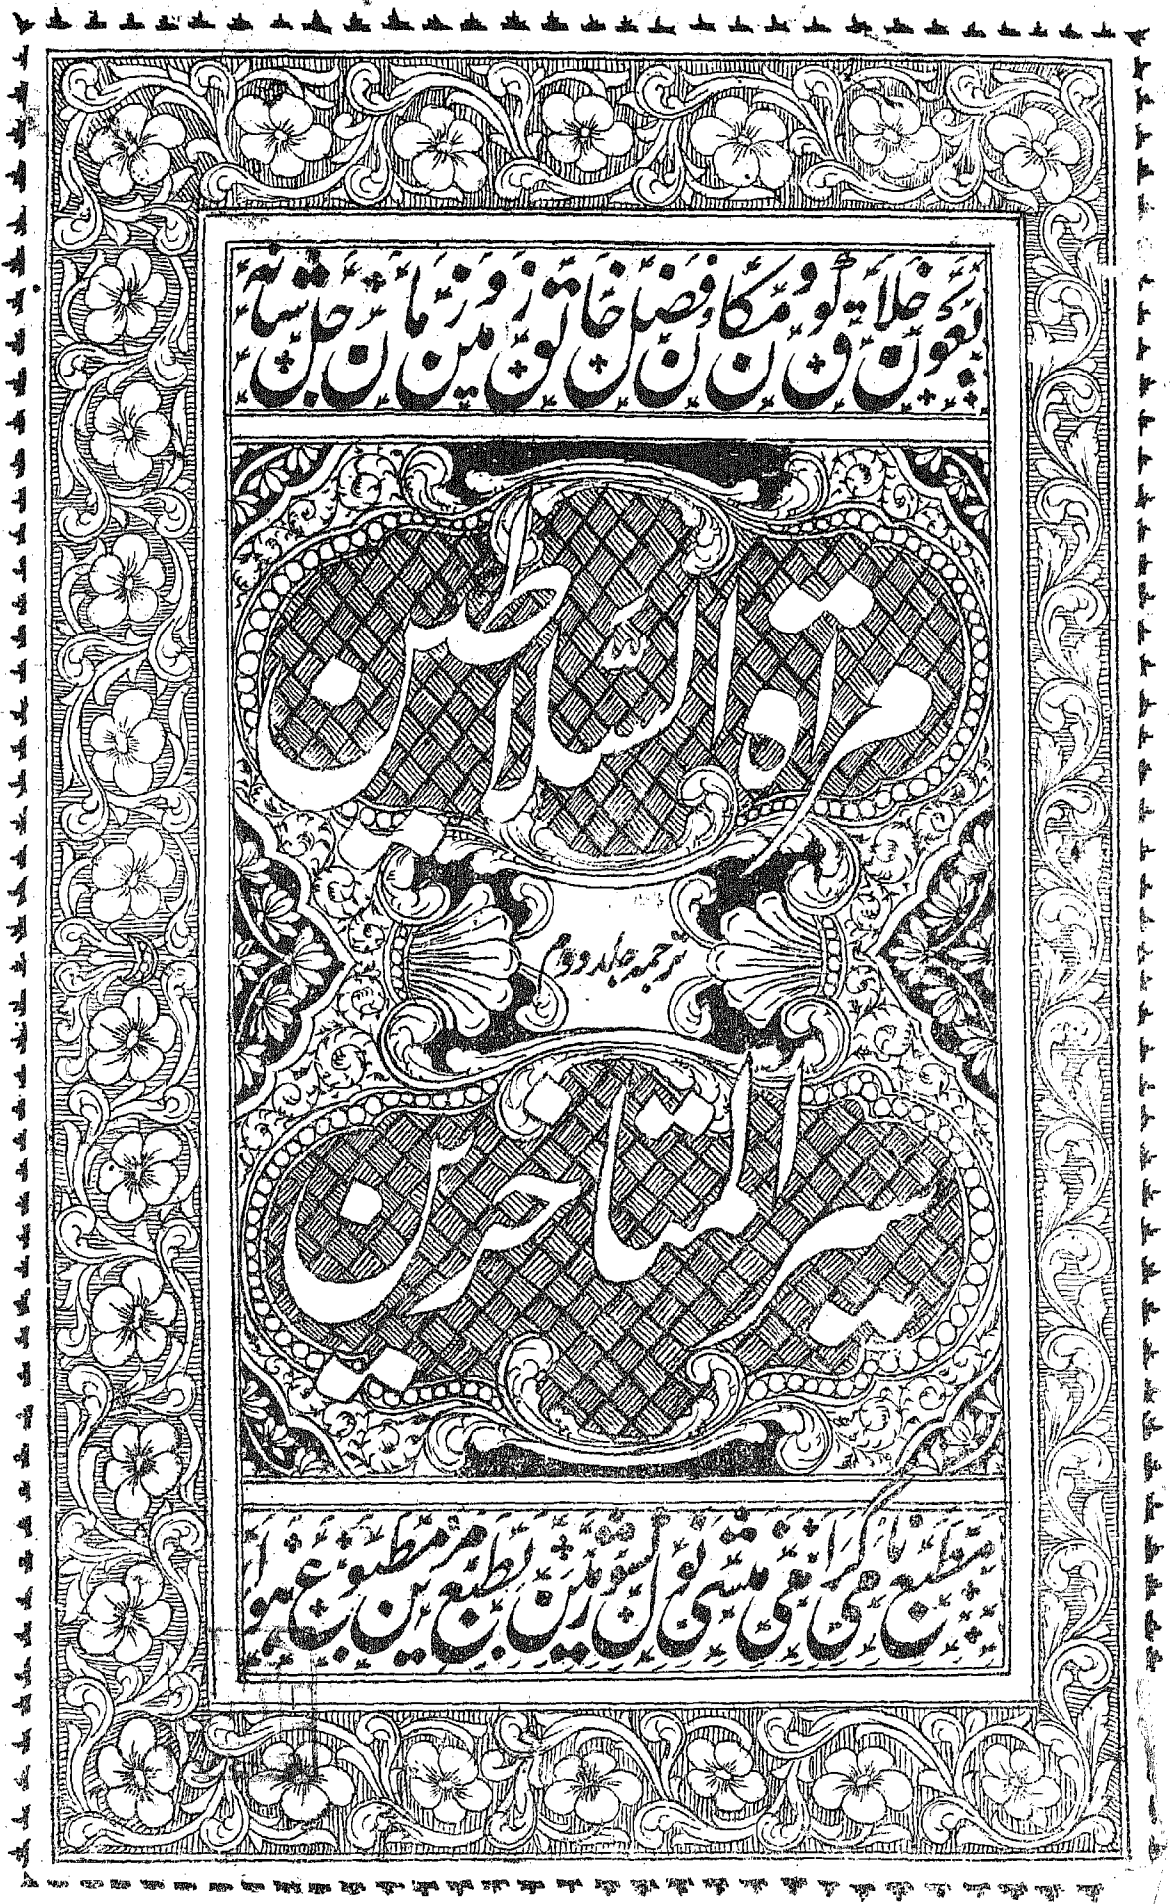 بعون خلاق کون و مکان و فضل خالق زمین و زمان جل شانہ
مرآة السلاطین
ترجمہ جلد دوم
سیر المتاخرین
مطبع نامی گرامی منشی نولکشور مین بطبع مزین مطبوع ہوا